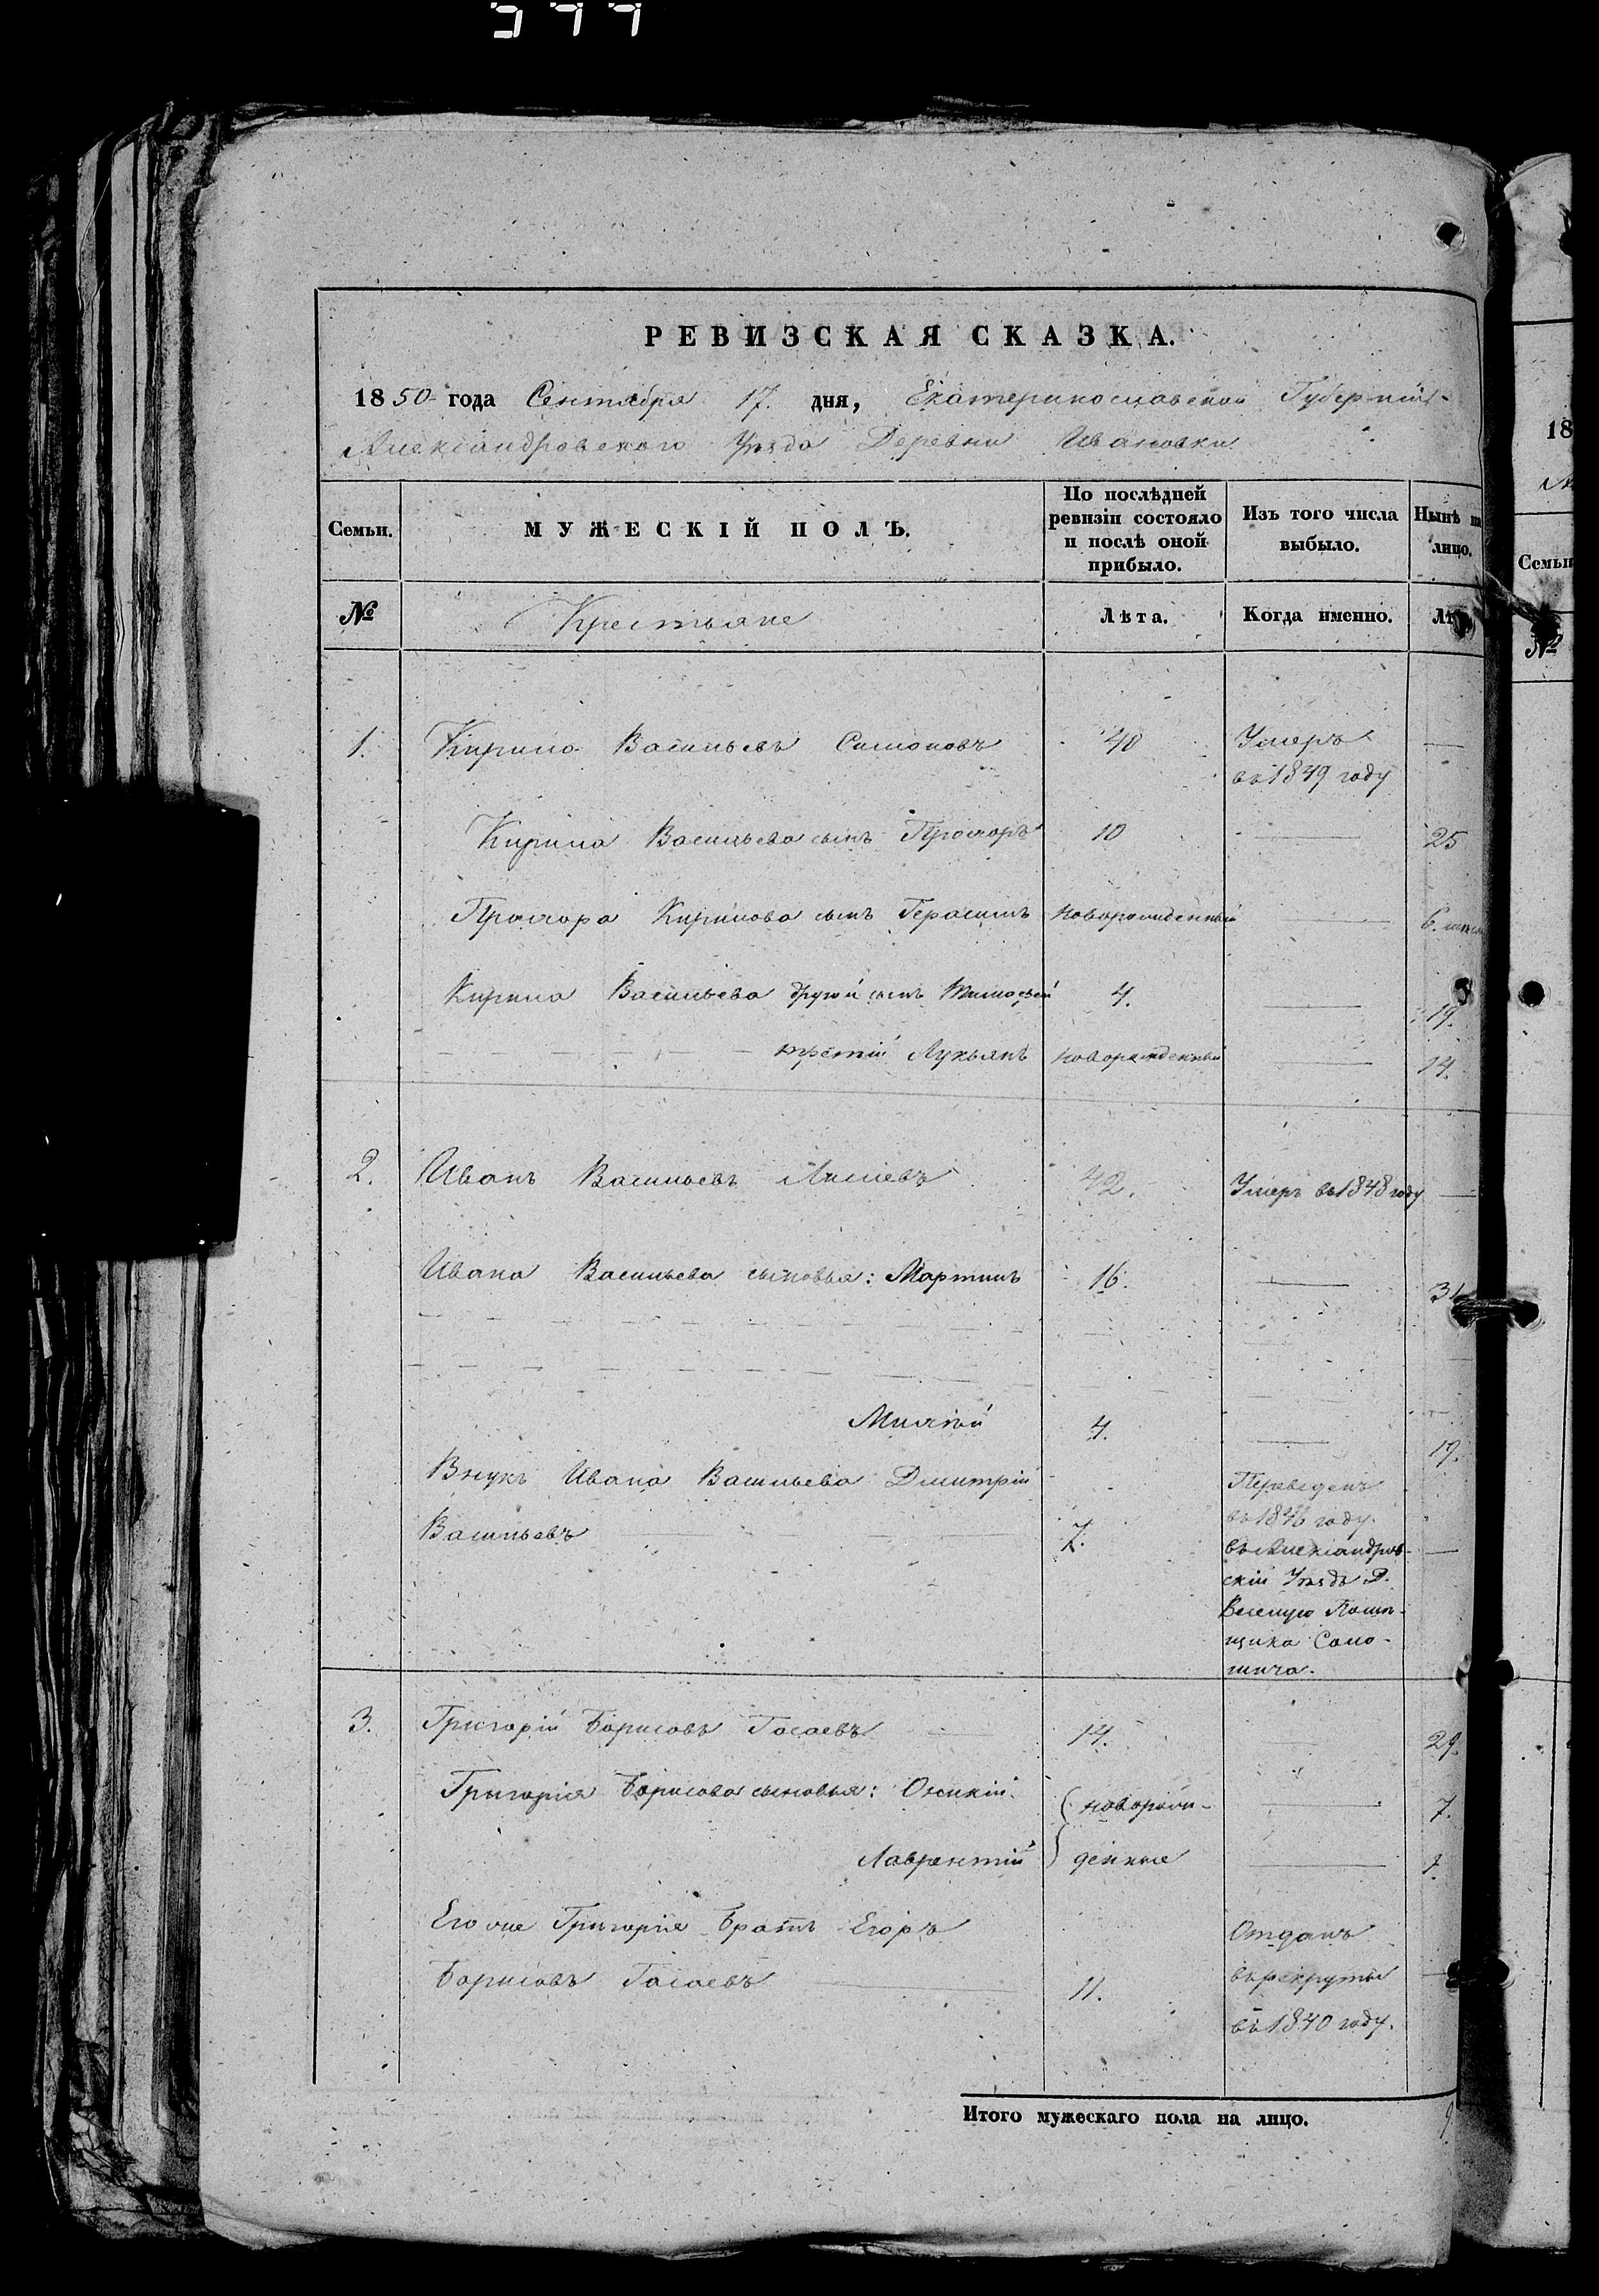 РЕВИЗСКАЯ СКАЗКА.
1850 года Сентября 17. дня, Екатеринославской Губерніи
Александровского Уѣзда Деревни Ивановки
Семьи. МУЖЕСКІЙ ПОЛЪ. По послѣдней ревизіи состояло и послѣ оной прибыло. Изъ того числа выбыло. Нынѣ на лицо.
№ Крестьяне Лѣта. Когда именно.
1. Кирила Васильевъ Симоновъ 40 Умеръ —
въ 1849 году
Кирила Васильева сынъ Прохоръ 10 — 25
Прохора Кирилова сынъ Герасимъ новорожденный — 6.
Кирила Васильева другой сынъ Тимофей 4. — 19.
третій Лукьянъ новорожденный — 14.
2. Иванъ Васильевъ 42. Умеръ въ 1848 году —
Ивана Васильева сыновья: Мартинъ 16. — 31
Михѣй 4. — 19.
Внукъ Ивана Васильева Дмитрій Переведенъ
Васильевъ 7. въ 1846 году.
въ Александров- —
скій Уѣздъ Д.
Веселую Помѣ-
щика
3. Григорій Борисовъ Гасаевъ — 14. — 29.
Григорія Борисова сыновья: новорож- — 7.
Лаврентій денные —
Его же Григорія Братъ Егоръ Отданъ
Борисовъ Гасаевъ — 11. въ рекруты —
въ 1840 году.
Итого мужескаго пола на лицо. 9
18
Семьи
№